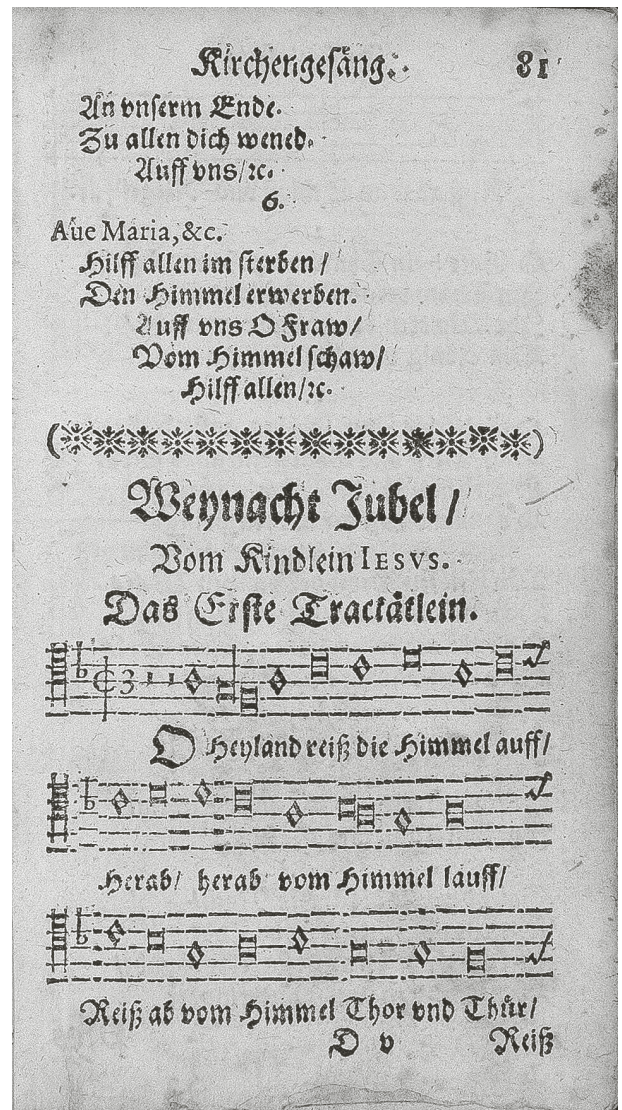 Kirchengesäng. 81
An vnserm Ende.
Zu allen dich wened.
Auff vns/ꝛc.
6.
Aue Maria,&c.
Hilff allen im sterben/
Den Himmel erwerben.
Auff vns O Fraw/
Vom Himmel schaw/
Hilff allen/ꝛc.
Weynacht Jubel/
Vom Kindlein IESVS.
Das Erste Tractätlein.
O Heyland reiß die Himmel auff/
Herab/ herab vom Himmel lauff/
Reiß ab vom Himmel Thor vnd Thür/
D v Reiß